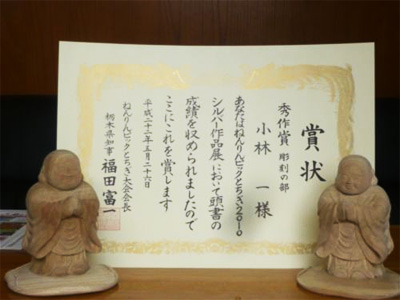 賞状
秀作賞 彫刻の部
小林 一 様
あなたはねんりんピックとちぎ2010
シルバー作品展において頭書の
成績を収められましたので
ここにこれを賞します
平成二十二年五月二十六日
ねんりんピックとちぎ大会会長
栃木県知事 福田富一